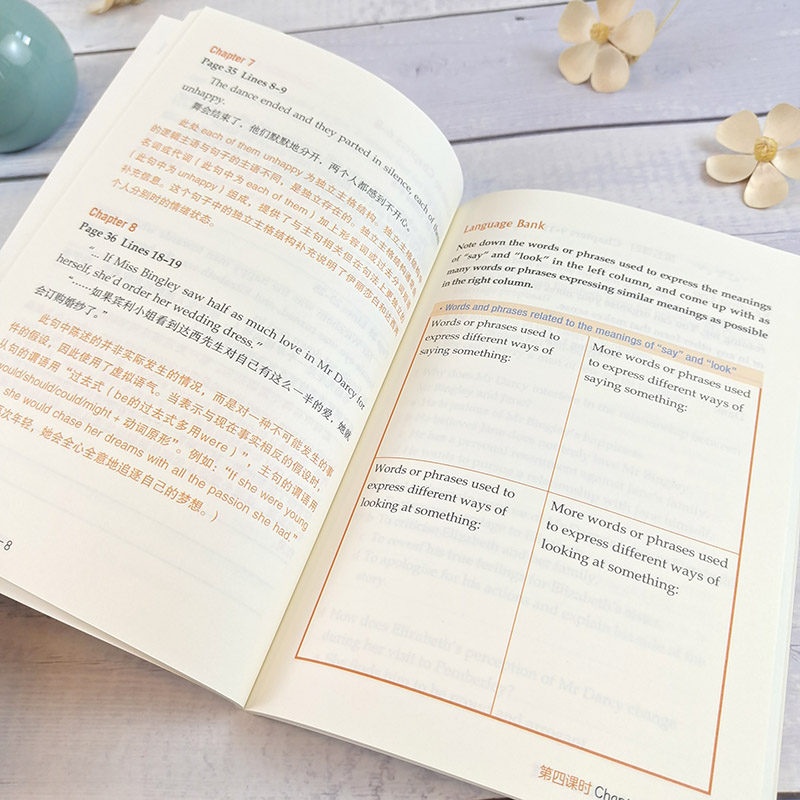 Chapter 7
Page 35 Lines 8–9
The dance ended and they parted in silence, each of them
unhappy.
舞会结束了，他们默默地分开，两个人都感到不开心。
此处 each of them unhappy 为独立主格结构。独立主格结构
的逻辑主语与句子的主语不同，是独立存在的。
名词或代词（此句中为 each of them）加上形容词或
（此句中为 unhappy）组成，提供了与主句相关但在句法上更独立的
补充信息。这个句子中的独立主格结构补充说明了伊丽莎白和达西
个人分别时的情绪状态。
Chapter 8
Page 36 Lines 18–19
"... If Miss Bingley saw half as much love in Mr Darcy for
herself, she'd order her wedding dress."
“……如果宾利小姐看到达西先生对自己有这么一半的爱，她就
会订购婚纱了。”
此句中陈述的并非实际发生的情况，而是对一种不可能发生的事
件的假设，因此使用了虚拟语气。当表示与现在事实相反的假设时，
从句的谓语用“过去式（be的过去式多用were）”，主句的谓语用
would/should/could/might + 动词原形”。例如：“If she were young
she would chase her dreams with all the passion she had.”
次年轻，她会全心全意地追逐自己的梦想。）
–8
Language Bank
Note down the words or phrases used to express the meanings
of “say” and “look” in the left column, and come up with as
many words or phrases expressing similar meanings as possible
in the right column.
• Words and phrases related to the meanings of “say” and “look”
Words or phrases used to
express different ways of
saying something:
More words or phrases used
to express different ways of
saying something:
Words or phrases used to
express different ways of
looking at something:
More words or phrases used
to express different ways of
looking at something:
第四课时